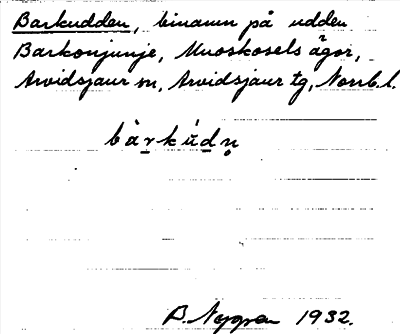 Barkudden, binamn på udden
Barkonjunje, Muoskosels ägor,
Arvidsjaur sn, Arvidsjaur tg, Norrb. l.
bàrkúdn̥
B. Nygren 1932.